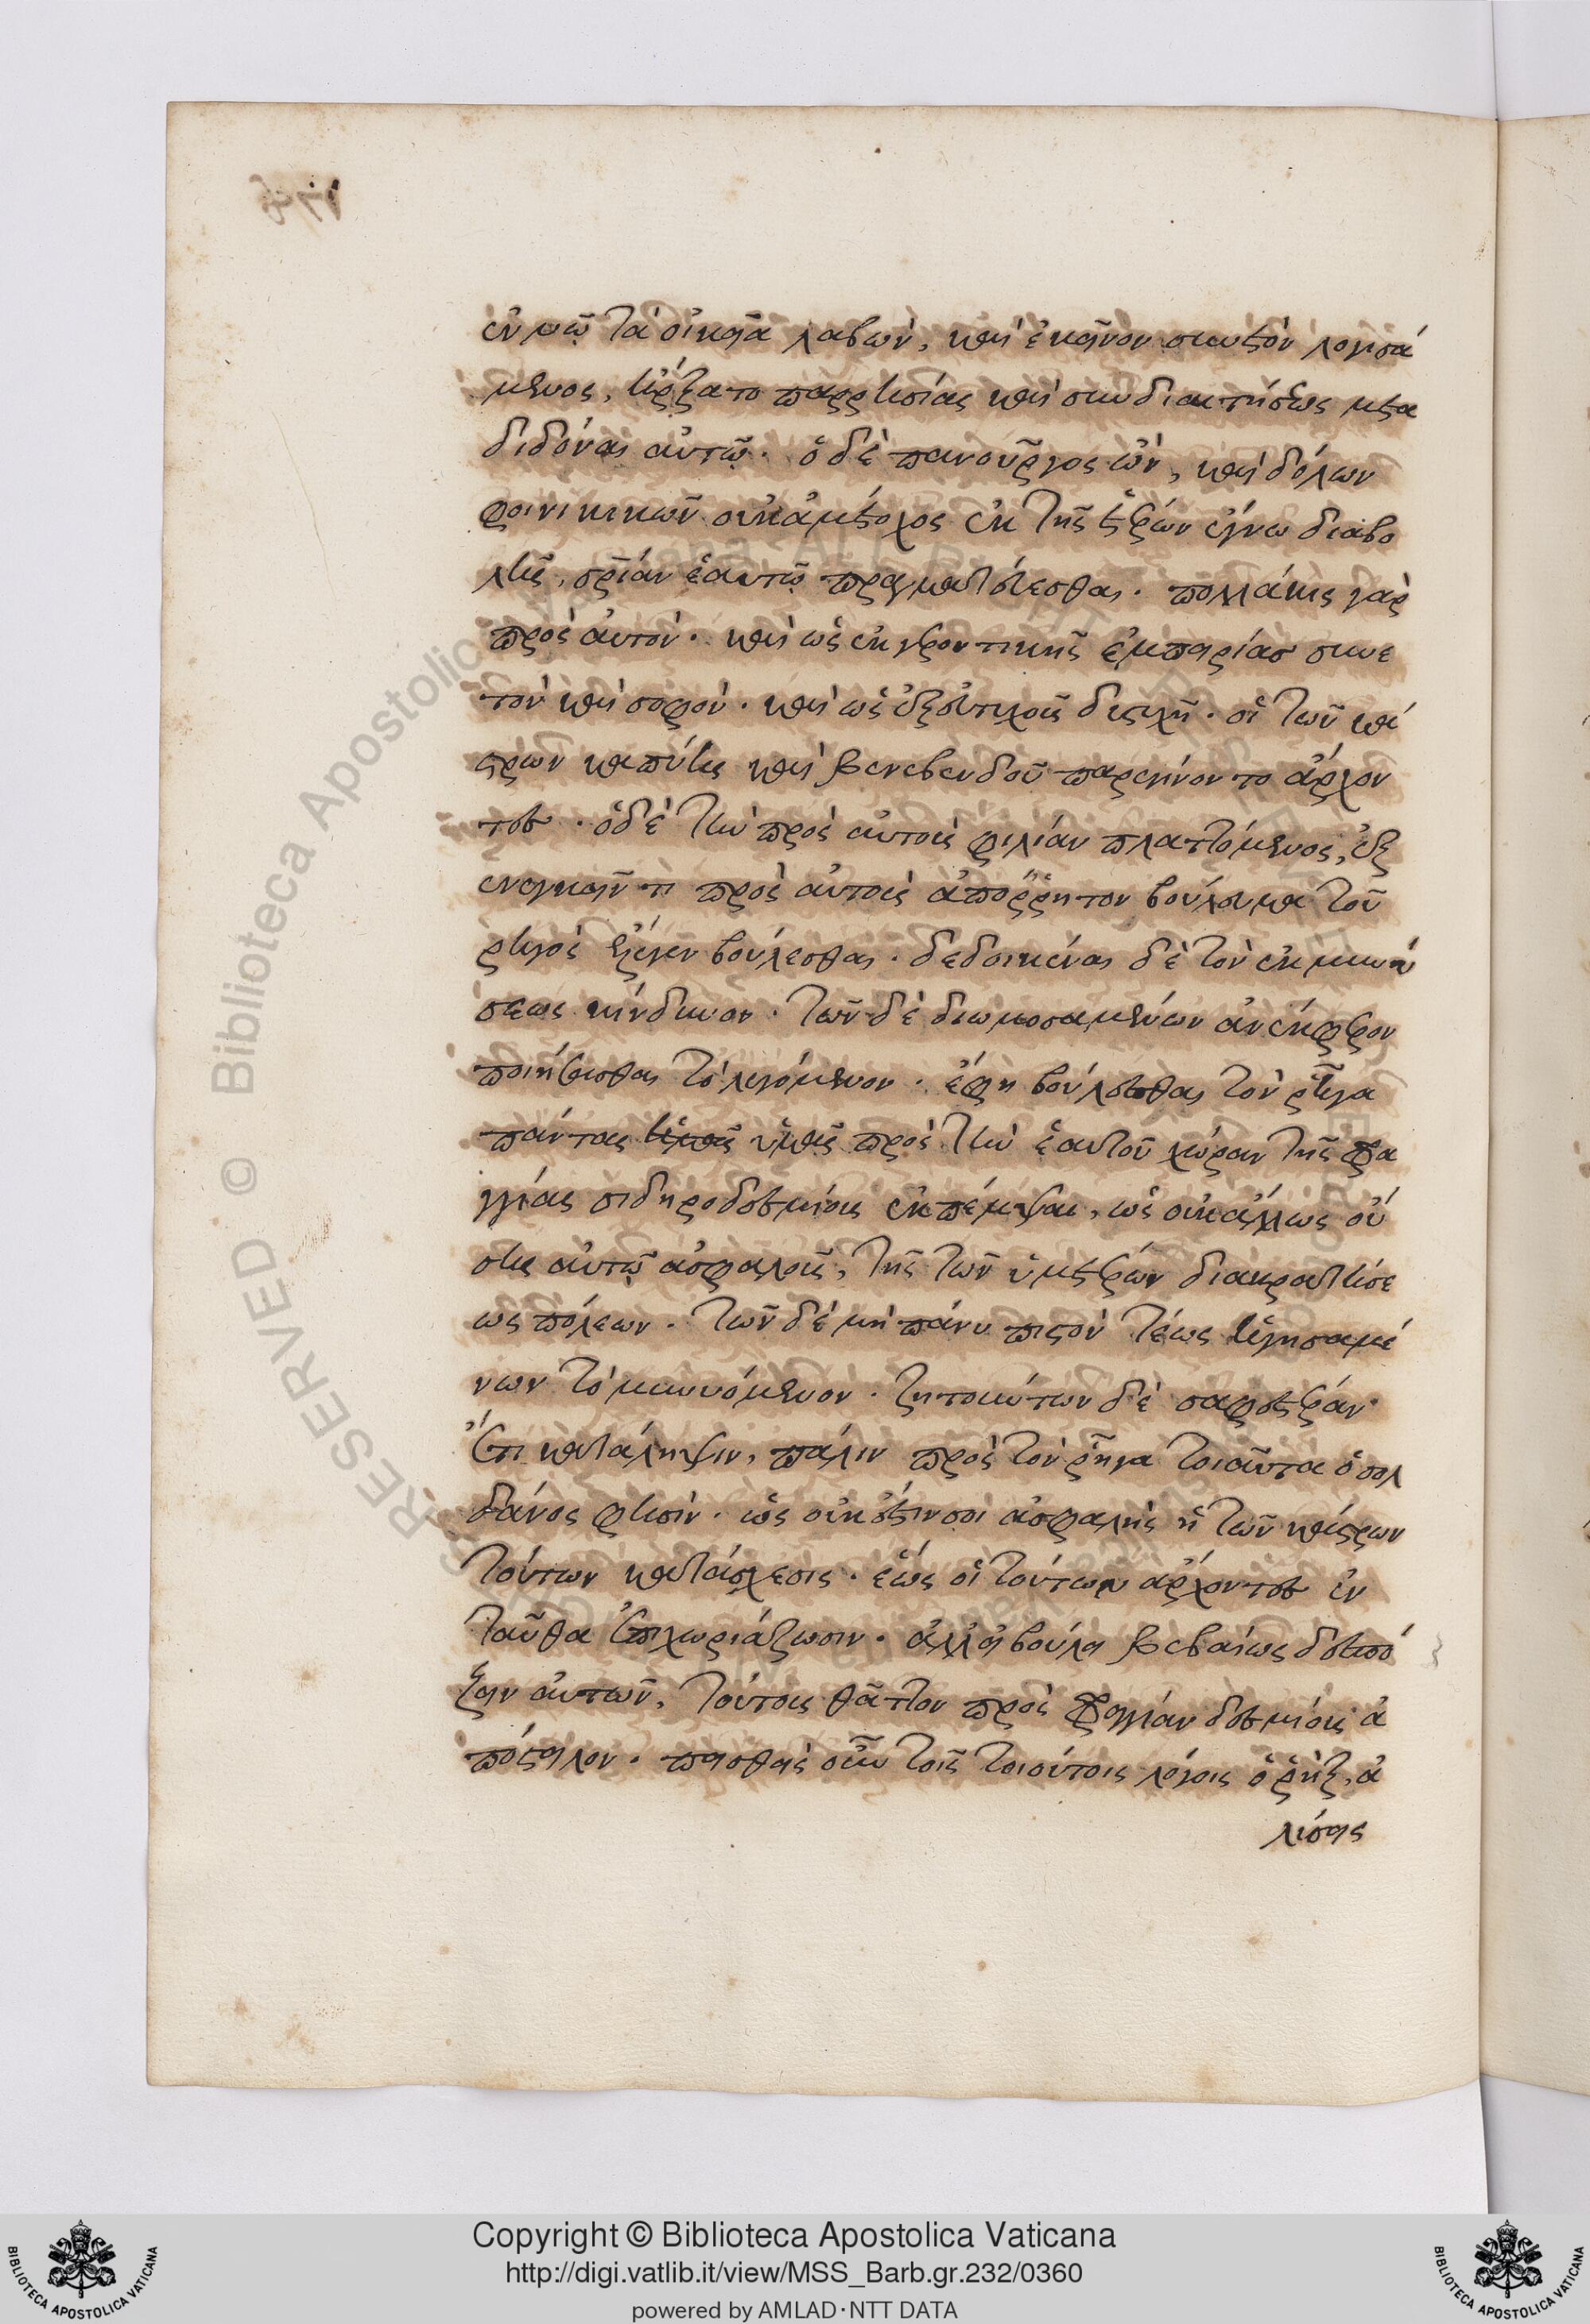 ἐν νῷ τὰ οἰκεῖα λαβὼν, καὶ ἐκεῖνον συνετὸν λογισά
μενος, ἤρξατο παρρησίας καὶ συνδιαιτήσεως μετα
διδόναι αὐτῷ. ὁ δὲ πανοῦργος ὢν, καὶ δόλων
φοινικικῶν οὐκ ἀμέτοχος ἐκ τῆς ἑτέρων ἔγνω διαβο
λῆς, σωτηρίαν ἑαυτῷ πραγματεύεσθαι. πολλάκις γὰρ
πρὸς αὐτὸν. καὶ ὡς ἐκ γεροντικῆς ἐμπειρίας συνε
τὸν καὶ σοφὸν. καὶ ὡς ἐξ εὐτυχοῦς δυστυχῆ. οἱ τῶν κά
στρων καπύης καὶ βενεβενδοῦ παρεγίνοντο ἄρχον
τες. ὁ δὲ τὴν πρὸς αὐτοὺς φιλίαν πλαττόμενος, ἐξ
ενεγκεῖν τι πρὸς αὐτοὺς ἀπόρρητον βούλευμα τοῦ
ρηγὸς ἔλεγεν βούλεσθαι. δεδοικέναι δὲ τὸν ἐκ μηνύ
σεως κίνδυνον. τῶν δὲ διωμοσαμένων ἀνέκφορον
ποιήσασθαι τὸ λεγόμενον. ἔφη βούλεσθαι τὸν ρῆγα
πάντας ἡμᾶς ὑμᾶς πρὸς τὴν ἑαυτοῦ χώραν τῆς φρα
γγίας σιδηροδεσμίους ἐκπέμψαι, ὡς οὐκ ἄλλως οὔ
σης αὐτῷ ἀσφαλοῦς, τῆς τῶν ὑμετέρων διακρατήσε
ως πόλεων. τῶν δὲ μὴ πάνυ πιστὸν τέως ἡγησαμέ
νων τὸ μηνυόμενον. ζητούντων δὲ σαφεστέραν
ἔτι κατάληψιν, πάλιν πρὸς τὸν ρῆγα τοιαῦτα ὁ σολ
δάνος φησὶν. ὡς οὐκ ἔστιν σοι ἀσφαλὴς ἡ τῶν κάστρων
τούτων κατάσχεσις. ἕως οἱ τούτων ἄρχοντες ἐν
ταῦθα ἐπιχωριάζωσιν. ἀλλ' εἰ βούλει βεβαίως δεσπό
ζειν αὐτῶν, τούτους θᾶττον πρὸς φραγγίαν δεσμίους ἀ
πόστειλον. πεισθεὶς οὖν τοῖς τοιούτοις λόγοις ὁ ρὴξ, ἁ
λύσεις
Copyright © Biblioteca Apostolica Vaticana
http://digi.vatlib.it/view/MSS_Barb.gr.232/0360
powered by AMLAD·NTT DATA